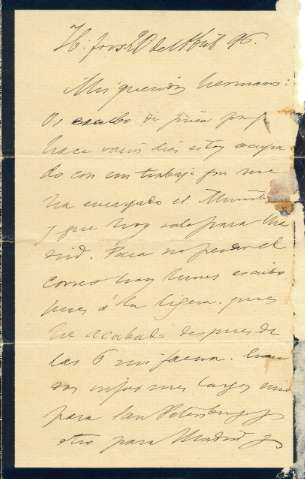 H. fors 20 de Abril 96.
Mis queridos hermanos:
Os escribo de prisa porq.
hace varios dias estoy ocupa
do con un trabajo que me
ha encargado el Minist
y que hoy sale para Ma
drid. Para no perder el
correo hoy lunes escribo
pues á la ligera. pues
he acabado despues de
las 6 mi faena.
dos informes largos uno
para San Petersburgo y
otro para Madrid